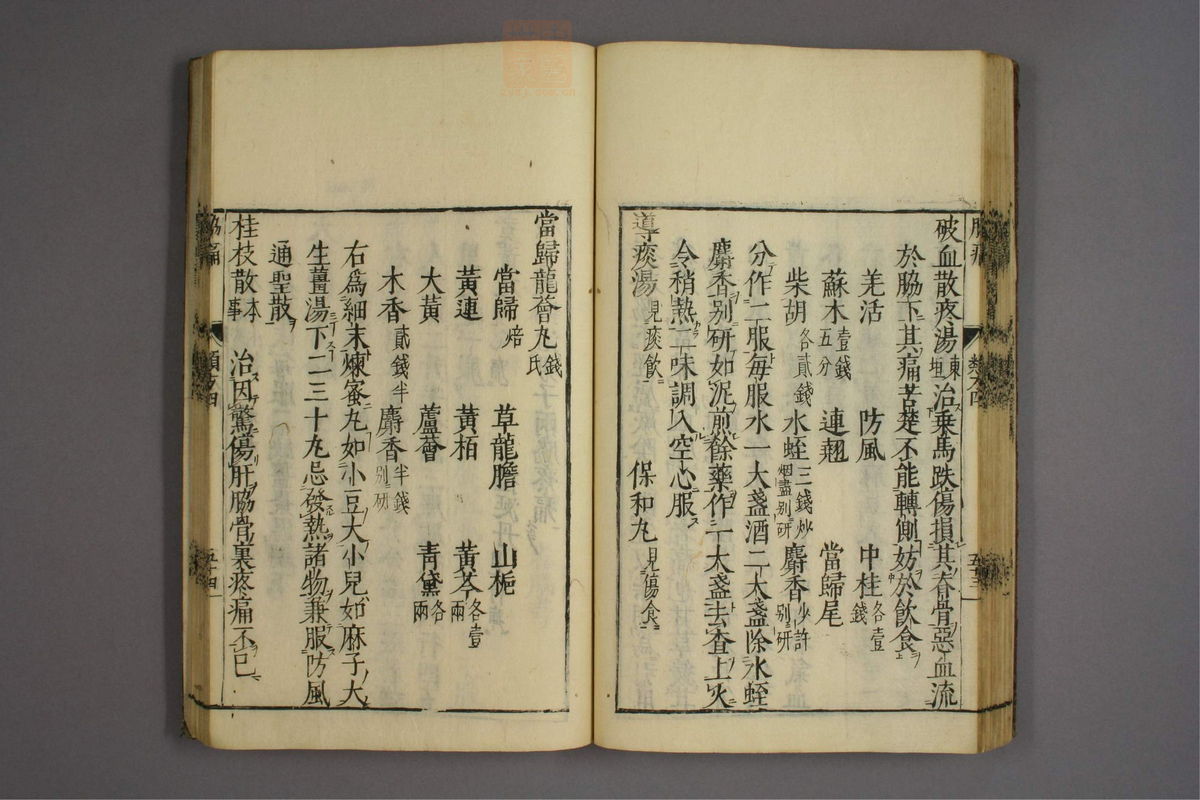 破血散疼湯東垣治乗馬跌傷損其脊骨惡血流
於脇下其痛苦楚不能轉側妨於飲食
羌活 防風 中桂各壹錢
蘇木壹錢五分 連翹 當歸尾
柴胡各貳錢 水蛭三錢炒烟盡别研 麝香少許别研
分作二服每服水一大盞酒二大盞除水蛭
麝香别研如泥煎餘藥作一大盞去査上火
令稍熱二味調入空心服
導痰湯見痰飲 保和丸見傷食
當歸龍薈丸錢氏
當歸焙 草龍膽 山梔
黃連 黃栢 黃芩各壹兩
大黃 蘆薈 靑黛各半兩
木香貳錢半 麝香半錢别研
右爲細末煉蜜丸如小豆大小兒如麻子大
生薑湯下二三十丸忌發熱諸物兼服防風
通聖散
桂枝散本事 治因驚傷肝脇骨裏疼痛不已
脇痛 類方四 五十四